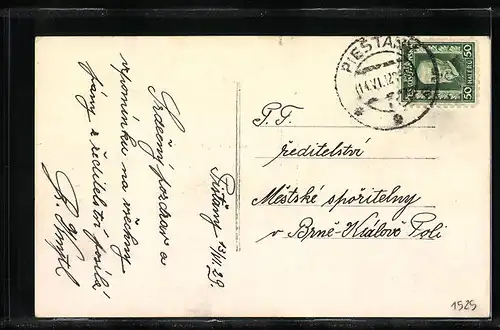 Srdečný pozdrav a
vzpomínku na všechny
pány z ředitelství posílá
Pieštany 13/VI. 29.
PIEŠŤANY
14.VI.
50 HALÉŘŮ 50
P. T.
ředitelství
Městské spořitelny
v Brně-Králově Poli
1929